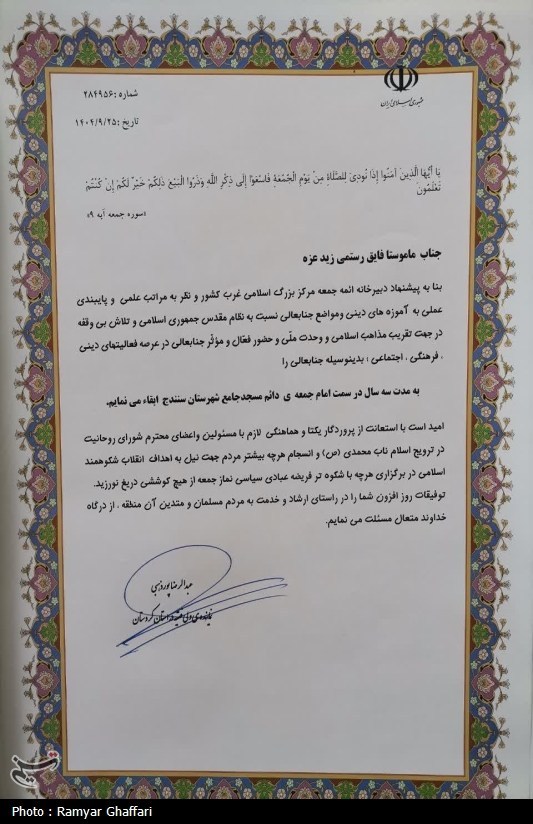 جمهوری اسلامی ایران
شماره :۲۸۴۹۵۶
تاریخ :۱۴۰۴/۹/۲۵
یَا أَیُّهَا الَّذِینَ آمَنُوا إِذَا نُودِیَ لِلصَّلَاةِ مِنْ یَوْمِ الْجُمُعَةِ فَاسْعَوْا إِلَى ذِکْرِ اللَّهِ وَذَرُوا الْبَیْعَ ذَلِکُمْ خَیْرٌ لَکُمْ إِنْ کُنْتُمْ
تَعْلَمُونَ
«سوره جمعه آیه ۹»
جناب ماموستا فایق رستمی زید عزه
بنا به پیشنهاد دبیرخانه ائمه جمعه مرکز بزرگ اسلامی غرب کشور و نظر به مراتب علمی و پایبندی
عملی به آموزه های دینی ومواضع جنابعالی نسبت به نظام مقدس جمهوری اسلامی و تلاش بی وقفه
در جهت تقریب مذاهب اسلامی و وحدت ملّی و حضور فعّال و مؤثّر جنابعالی در عرصه فعالیتهای دینی
، فرهنگی ، اجتماعی ؛ بدینوسیله جنابعالی را
به مدت سه سال در سمت امام جمعه ی دائم مسجدجامع شهرستان سنندج ابقاء می نمایم.
امید است با استعانت از پروردگار یکتا و هماهنگی لازم با مسئولین واعضای محترم شورای روحانیت
در ترویج اسلام ناب محمدی (ص) و انسجام هرچه بیشتر مردم جهت نیل به اهداف انقلاب شکوهمند
اسلامی در برگزاری هرچه با شکوه تر فریضه عبادی سیاسی نماز جمعه از هیچ کوششی دریغ نورزید.
توفیقات روز افزون شما را در راستای ارشاد و خدمت به مردم مسلمان و متدین آن منطقه ، از درگاه
خداوند متعال مسئلت می نمایم.
عبدالرضا پورذهبی
نماینده ی ولی فقیه در استان کردستان
تسنیم
Photo : Ramyar Ghaffari